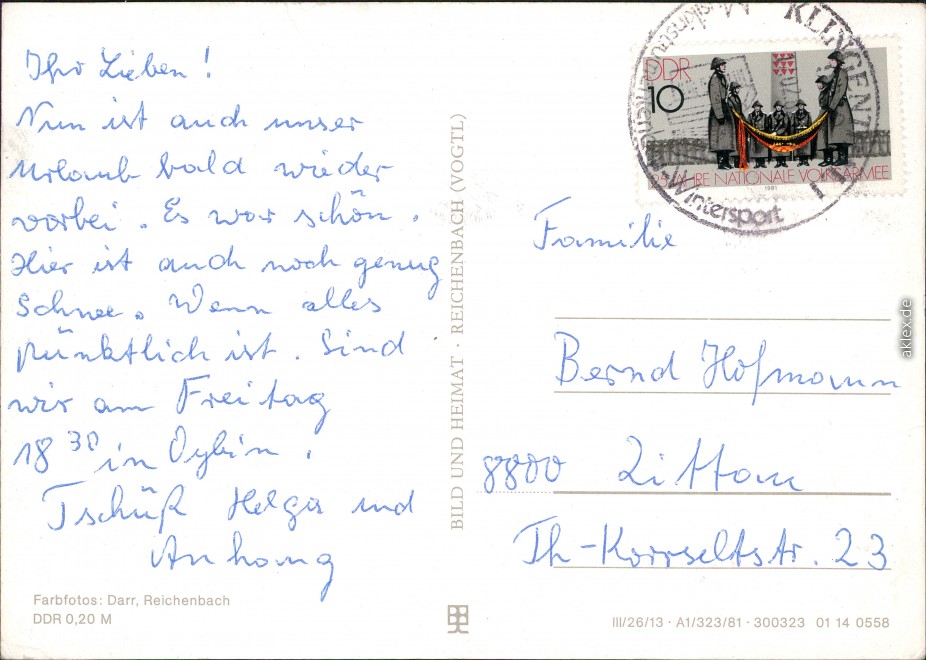 Ihr Lieben!
Nun ist auch unser
Urlaub bald wieder
vorbei. Es war schön.
Hier ist auch noch genug
Schnee. Wenn alles
pünktlich ist. Sind
wir am Freitag
18 30 in Oybin.
Tschüß Helga und
Anhang
Farbfotos: Darr, Reichenbach
DDR 0,20 M
BILD UND HEIMAT · REICHENBACH (VOGTL)
DDR
10
25 JAHRE NATIONALE VOLKSARMEE
1981
KLINGENT
Wintersport
Familie
Bernd Hofmann
8800 Zittau
Th-Korseltstr. 23
III/26/13 · A1/323/81 · 300323 01 14 0558
aklex.de